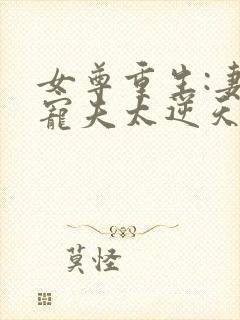 女尊重生:妻
寵夫太逆天
莫怪